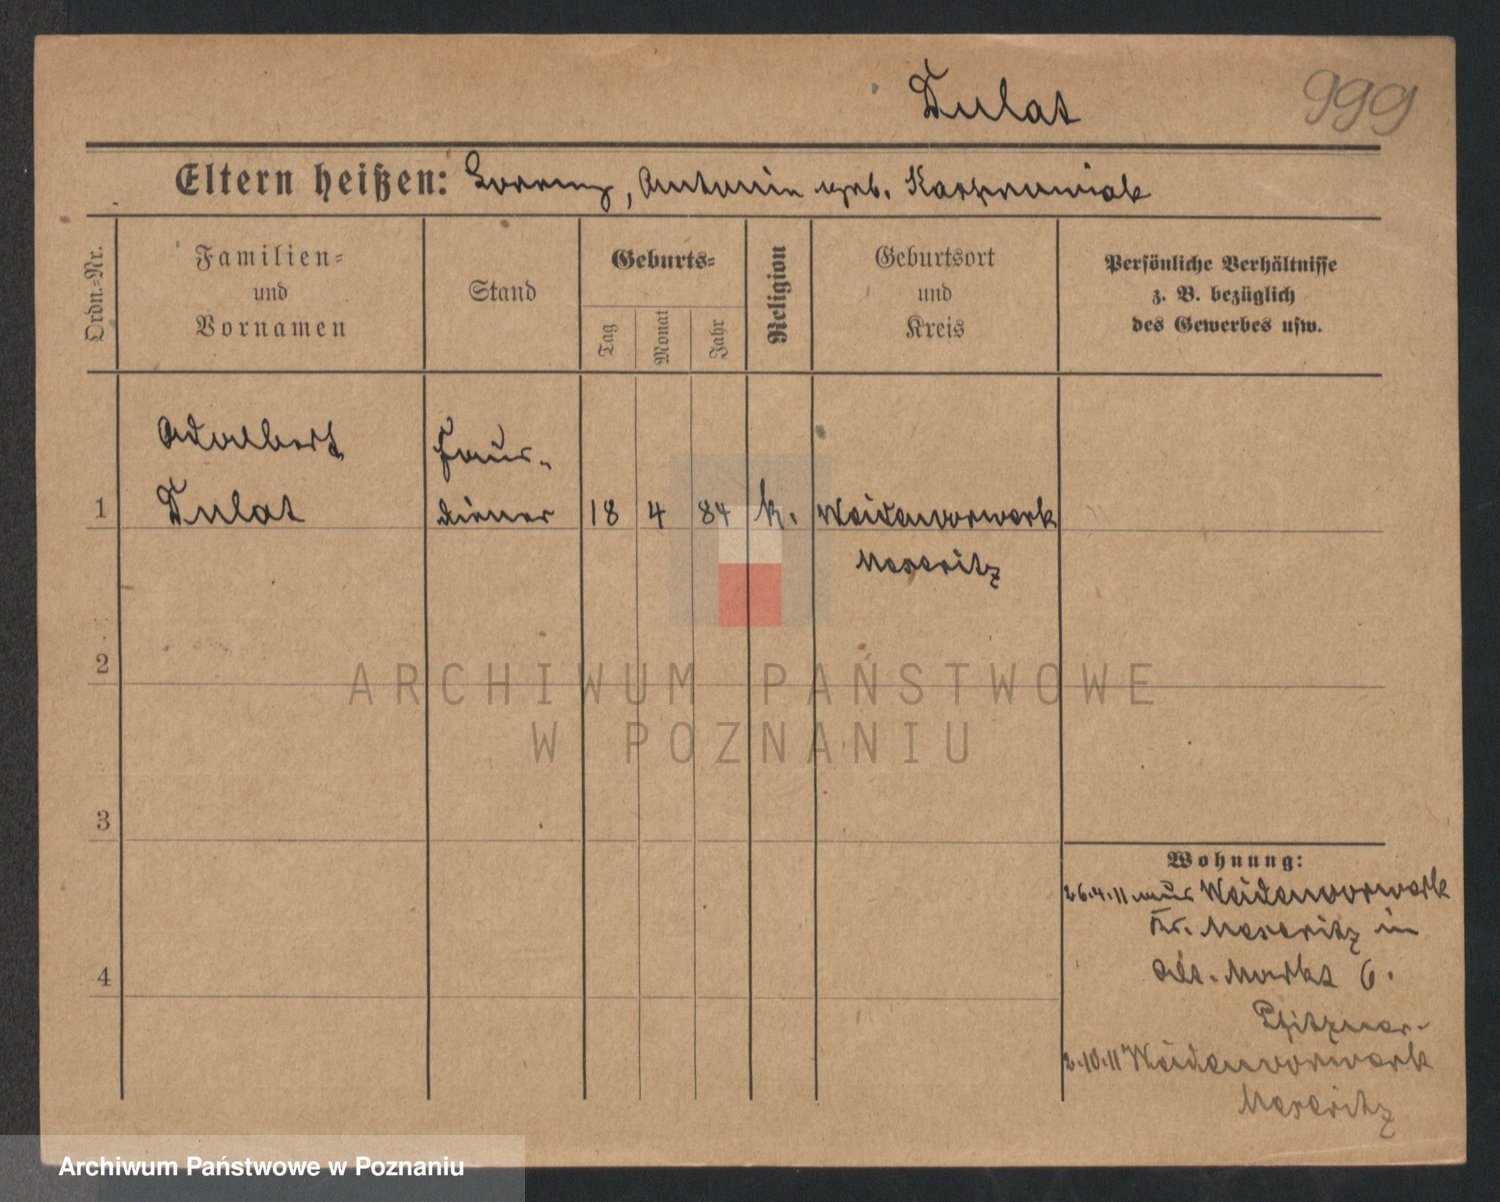 Dulat
999
Eltern heißen: Lorenz, Antonie geb. Kasprowiak
Ordn.-Nr.
Familien-
und
Vornamen
Stand
Geburts-
Tag
Monat
Jahr
Religion
Geburtsort
und
Kreis
Persönliche Verhältnisse
z. B. bezüglich
des Gewerbes usw.
Adalbert
Haus-
1 Dulat diener 18 4 84 k. Weidenvorwerk
Meseritz
2
ARCHIWUM PAŃSTWOWE
W POZNANIU
3
Wohnung:
26.4.11 aus Weidenvorwerk
Kr. Meseritz in
4
Alt. Markt 6.
Pfitzner.
2.10.11 Weidenvorwerk
Meseritz
Archiwum Państwowe w Poznaniu